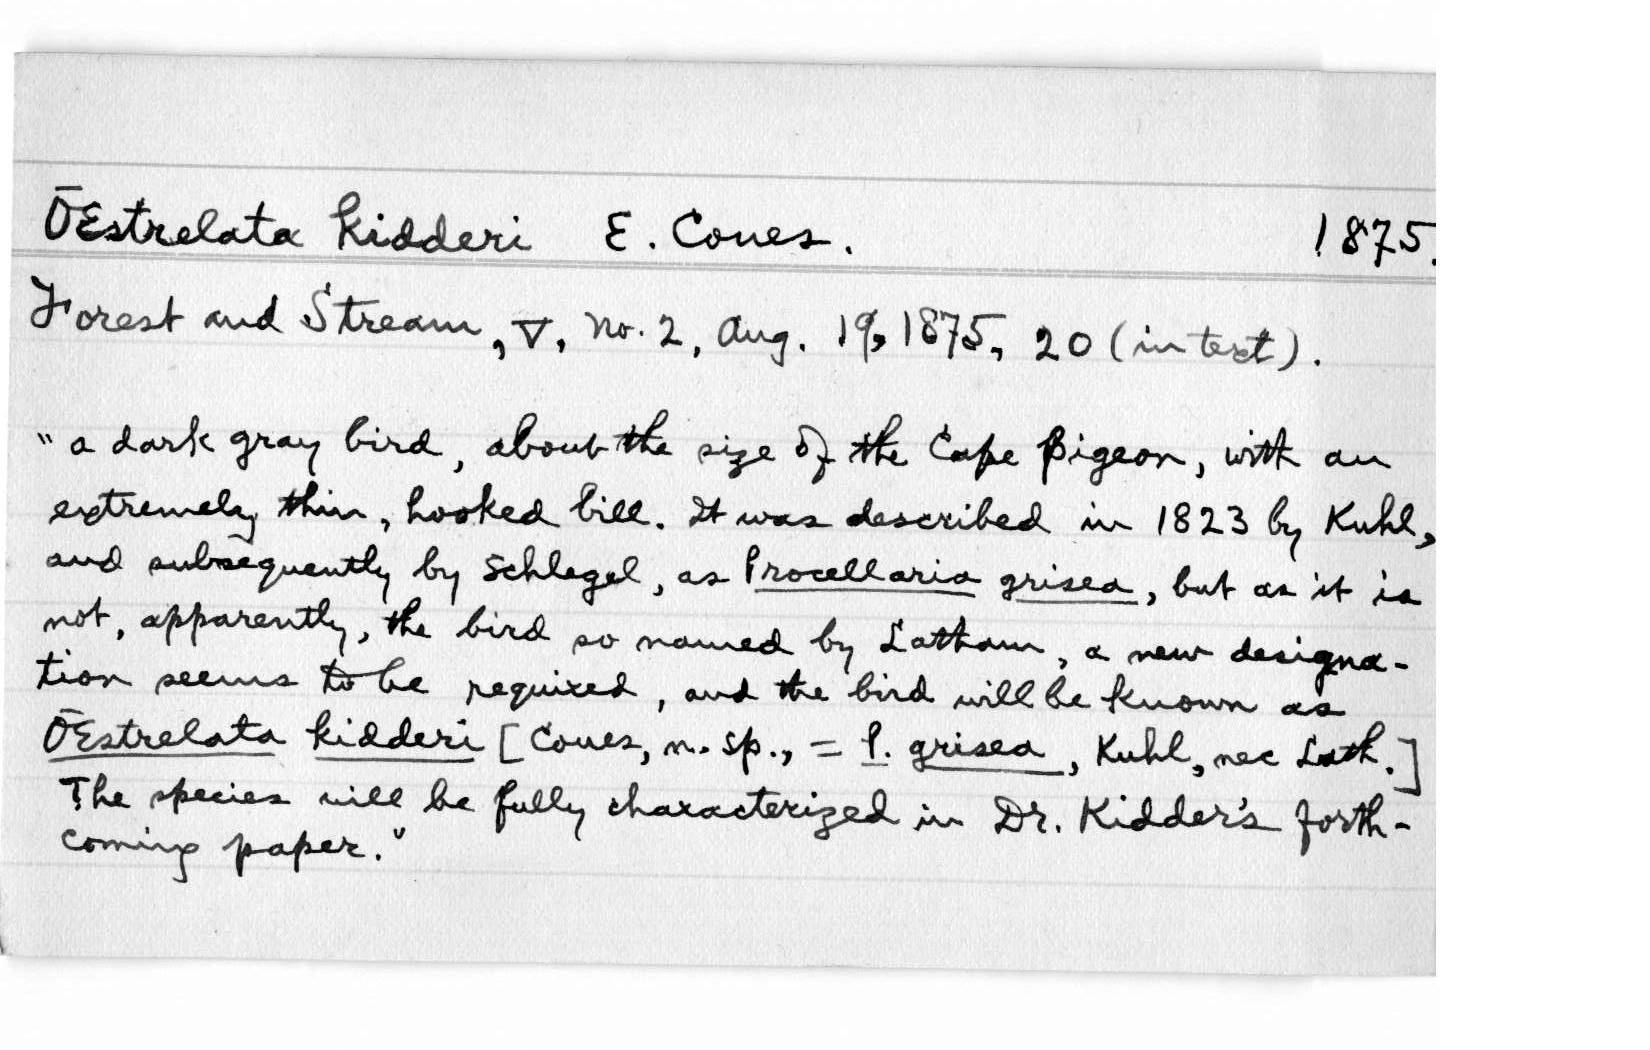 ŒEstrelata kidderi E. Coues. 1875.
Forest and Stream, V, No. 2, Aug. 19, 1875, 20 (in text).
"a dark gray bird, about the size of the Cape Pigeon, with an
extremely thin, hooked bill. It was described in 1823 by Kuhl,
and subsequently by Schlegel, as Procellaria grisea, but as it is
not, apparently, the bird so named by Latham, a new designa-
tion seems to be required, and the bird will be known as
ŒEstrelata kidderi [Coues, n. sp., = P. grisea, Kuhl, nec Lath.]
The species will be fully characterized in Dr. Kidder's forth-
coming paper."